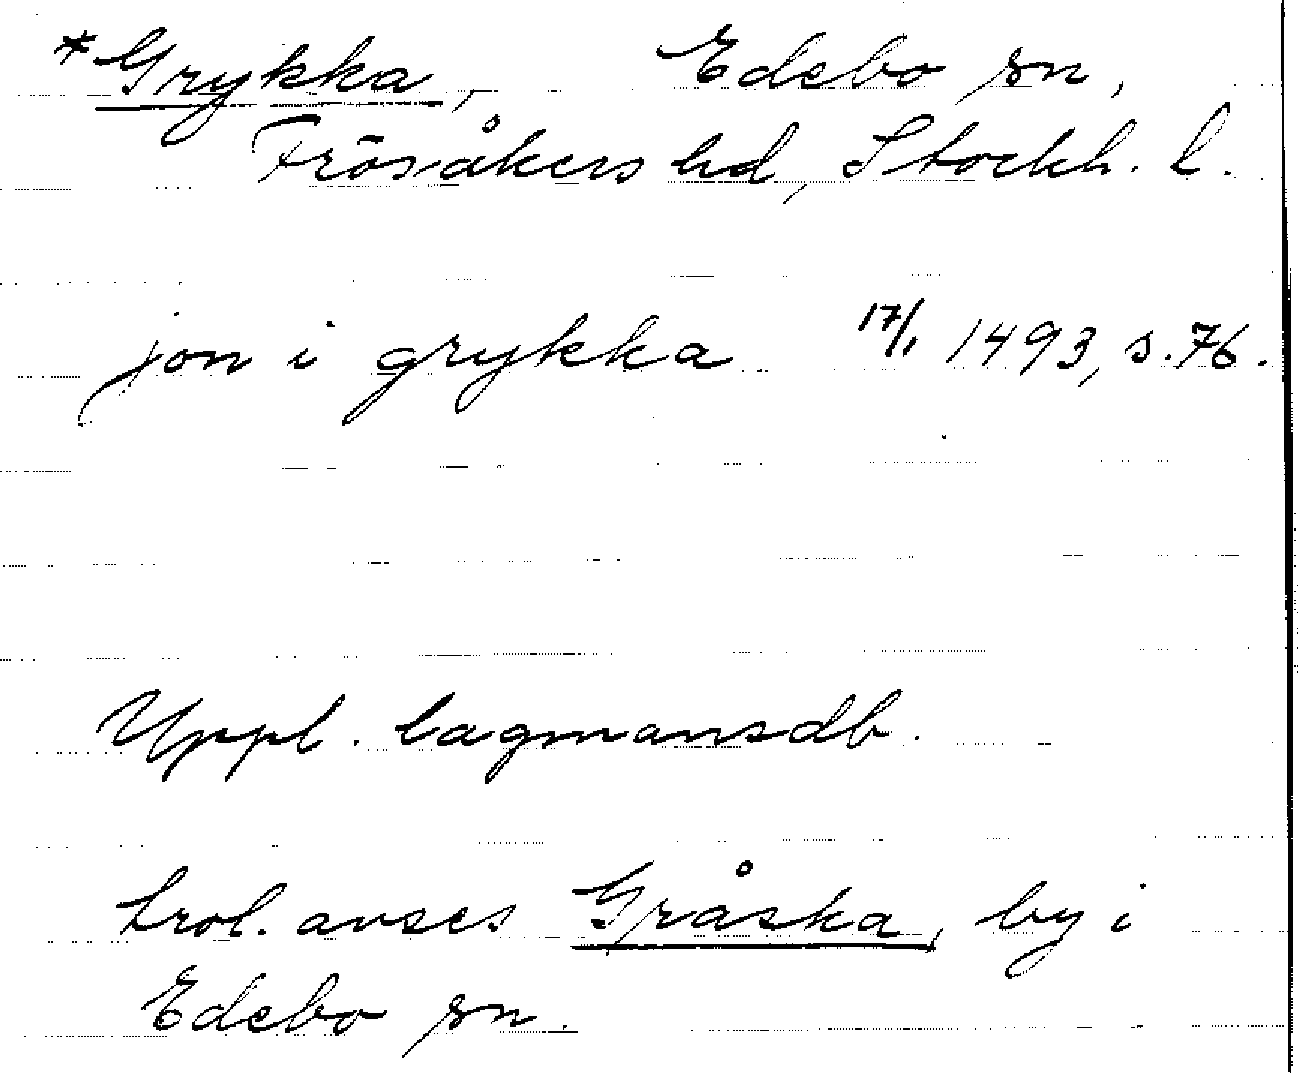 *Grykka, Edebo sn,
Frösåkers hd, Stockh. l.
jon i grykka 17/1 1493, s. 76.
Uppl. lagmansdb.
trol. avses Gråska, by i
Edebo sn.